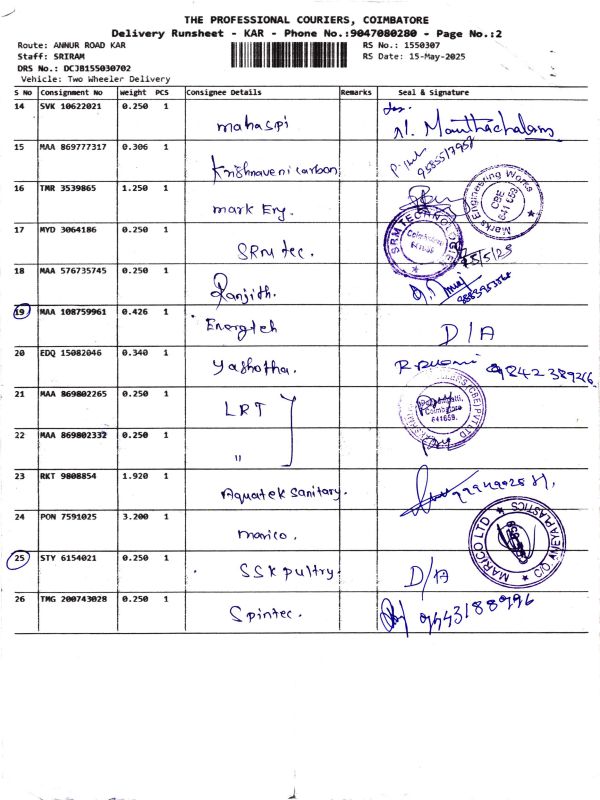 THE PROFESSIONAL COURIERS, COIMBATORE
Delivery Runsheet - KAR - Phone No.:9047080280 - Page No.:2
Route: ANNUR ROAD KAR
RS No.: 1550307
Staff: SRIRAM
RS Date: 15-May-2025
DRS No.: DCJB155030702
Vehicle: Two Wheeler Delivery
S No Consignment No Weight PCS Consignee Details Remarks Seal & Signature
14 SVK 10622021 0.250 1 mahaspi
15 MAA 869777317 0.306 1 Krishnaveni carbon
16 TMR 3539865 1.250 1 mark Eng. Marks Engineering Works CBE 641 659
17 MYD 3064186 0.250 1 SRM tec. SRM TECHNOLOGIES Coimbatore
18 MAA 576735745 0.250 1 Ranjith.
19 MAA 108759961 0.426 1 Energtch D/A
20 EDQ 15082046 0.340 1 Yashotha. 9842389266
21 MAA 869802265 0.250 1 LRT Coimbatore 641659.
22 MAA 869802332 0.250 1 "
23 RKT 9808854 1.920 1 Aquatek sanitary.
24 PON 7591025 3.200 1 marico. MARICO LTD C/O. ANEYA PLASTICS
25 STY 6154021 0.250 1 SSK pultry. D/A
26 TMG 200743028 0.250 1 Spintec. 9443188996